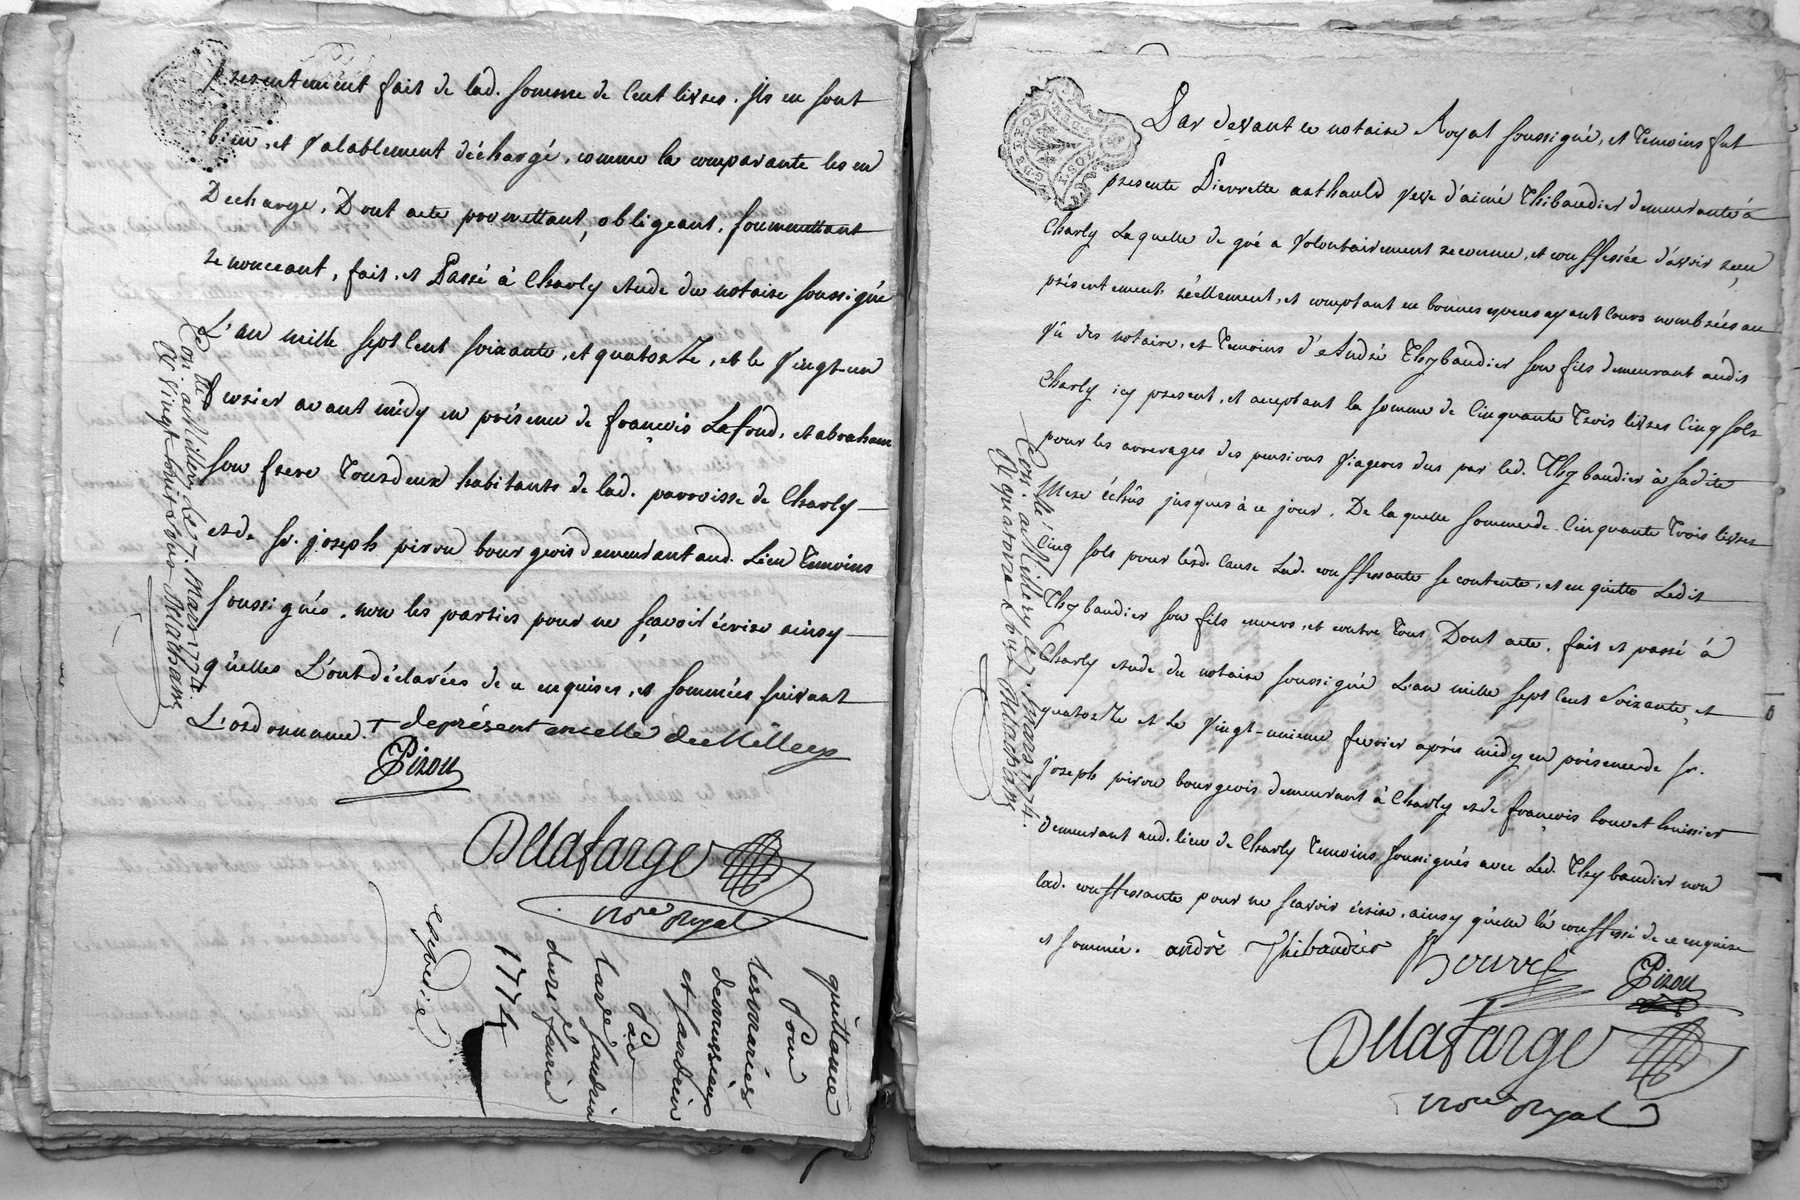 presentement fait de lad. somme de Cent livres. Ils en sont
bien, et Valablement déchargé, comme la comparante les en
Decharge, Dont acte promettant, obligeant, soummettant
renonceant, fait, et Passé à Charly étude du notaise soussigné
L'an mille sept Cent soixante, et quatorze, et le Vingt-un
fevrier avant midy en présence de françois Lafond, et abraham
son frere Tous deux habitants de lad. parroisse de Charly
et de Sr. joseph pizou bourgeois demeurant aud. Lieu Temoins
soussignés, non les parties pour ne sçavoir écrire ainsy
qu'elles L'ont déclarées de ce enquises, et sommées suivant
L'ordonnance + de présent en celle de Millery
Pizou
Dellafarge
Nore Royal
Con. à Millery Le 7. Mars 1774.
Rt Vingt huit sols
quittance
Pour
les mariés
et Jandrin
Par
du 21 fevrier
1774
Expediée
GEN DE LYON
Par devant le notaire Royal soussigné, et Temoins fut
presente Pierrette arthauld veve d'aimé Thibaudier demeurante à
Charly Laquelle de gré a Volontairement reconnu, et conffessée d'avoir reçu
présentement réellement, et comptant en bonnes especes ayant Cours nombrées au
Vû des notaire, et Temoins d'André Thybaudier son fils demeurant audit
Charly icy present, et acceptant la somme de Cinquante Trois livres Cinq sols
pour les arrerages des pensions Viageres dus par led. Thybaudier à sadite
Mere échûs jusques à ce jour. De laquelle somme de Cinquante Trois livres
Cinq sols pour lesd. Cause Lad. conffessante se contente, et en quitte Ledit
Thybaudier son fils envers, et contre Tous Dont acte, fait et passé à
Charly étude du notaire soussigné L'an mille sept Cent Soixante, et
quatorze et Le Vingt-unieme fevrier après midy en présence de Sr.
joseph pizou bourgeois demeurant à Charly et de françois bouvet huissier
demeurant aud. lieu de Charly Temoins soussignés avec Led. Thybaudier non
lad. conffessante pour ne scavoir écrire, ainsy qu'elle l'a conffessé de ce enquise
et sommée. andré Thibaudier
Bouvet
Pizou
Dellafarge
Nore Royal
Con. à Millery Le 7. Mars 1774.
Rt quatorze sols